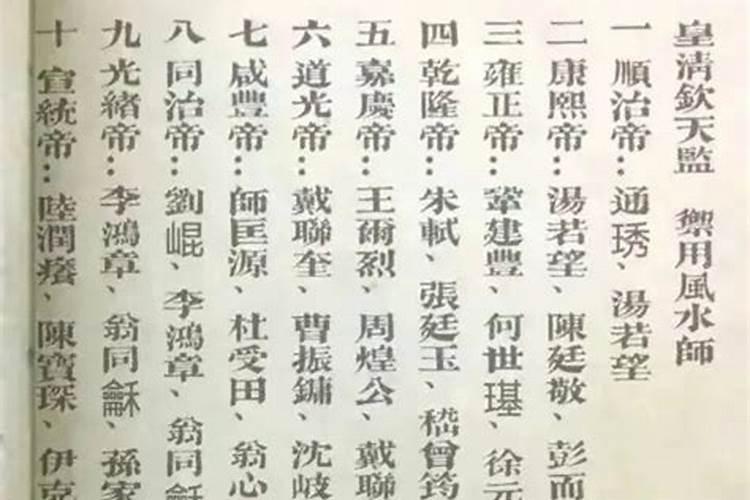 皇清欽天監　禦用風水師
一順治帝：通琇、湯若望
二康熙帝：湯若望、陳廷敬、彭而
三雍正帝：鞏建豐、何世璂、徐元
四乾隆帝：朱軾、張廷玉、嵇曾筠
五嘉慶帝：王爾烈、周煌公、戴聯
六道光帝：戴聯奎、曹振鏞、沈岐
七咸豐帝：師匡源、杜受田、翁心
八同治帝：劉崐、李鴻章、翁同龢
九光緒帝：李鴻章、翁同龢、孫家
十宣統帝：陸潤癢、陳寶琛、伊克